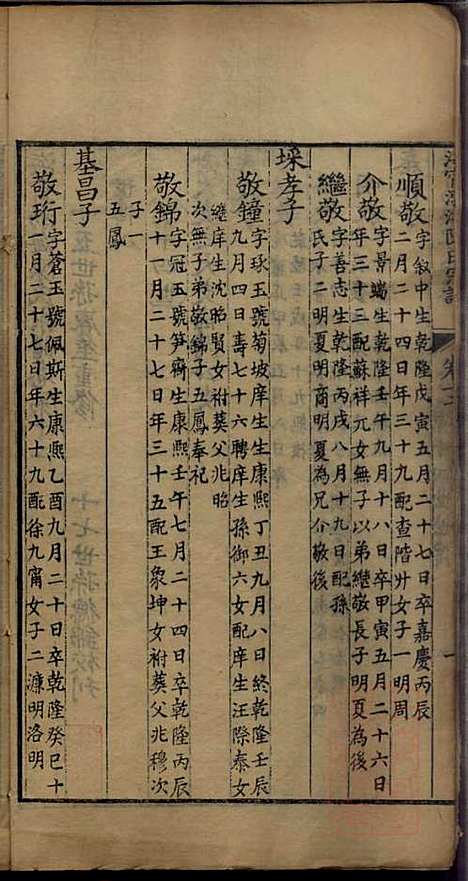 順敬
字敘中生乾隆戊寅五月二十七日卒嘉慶丙辰
二月二十四日年三十九配查階廾女子一明周
介敬
字景端生乾隆壬午九月十八日卒甲寅五月二十六日
年三十三配蘇祥元女無子以弟繼敬長子明夏為後
繼敬
字善志生乾隆丙戌八月十九日配孫
氏子二明夏明商明夏為兄介敬後
埰孝子
敬鐘
字球玉號菊坡庠生生康熙丁丑九月八日終乾隆壬辰
九月四日壽七十六聘庠生孫御六女配庠生汪際泰女
繼庠生沈昭賢女祔葬父兆昭
次無子弟敬錦子五鳳奉祀
敬錦
字冠五號笋齋生康熙壬午七月二十四日卒乾隆丙辰
十一月二十七日年三十五配王象坤女祔葬父兆穆次
子一
五鳳
基昌子
敬珩
字蒼玉號佩斯生康熙乙酉九月二十日卒乾隆癸巳十
一月二十七日年六十九配徐九甯女子二濂明洛明